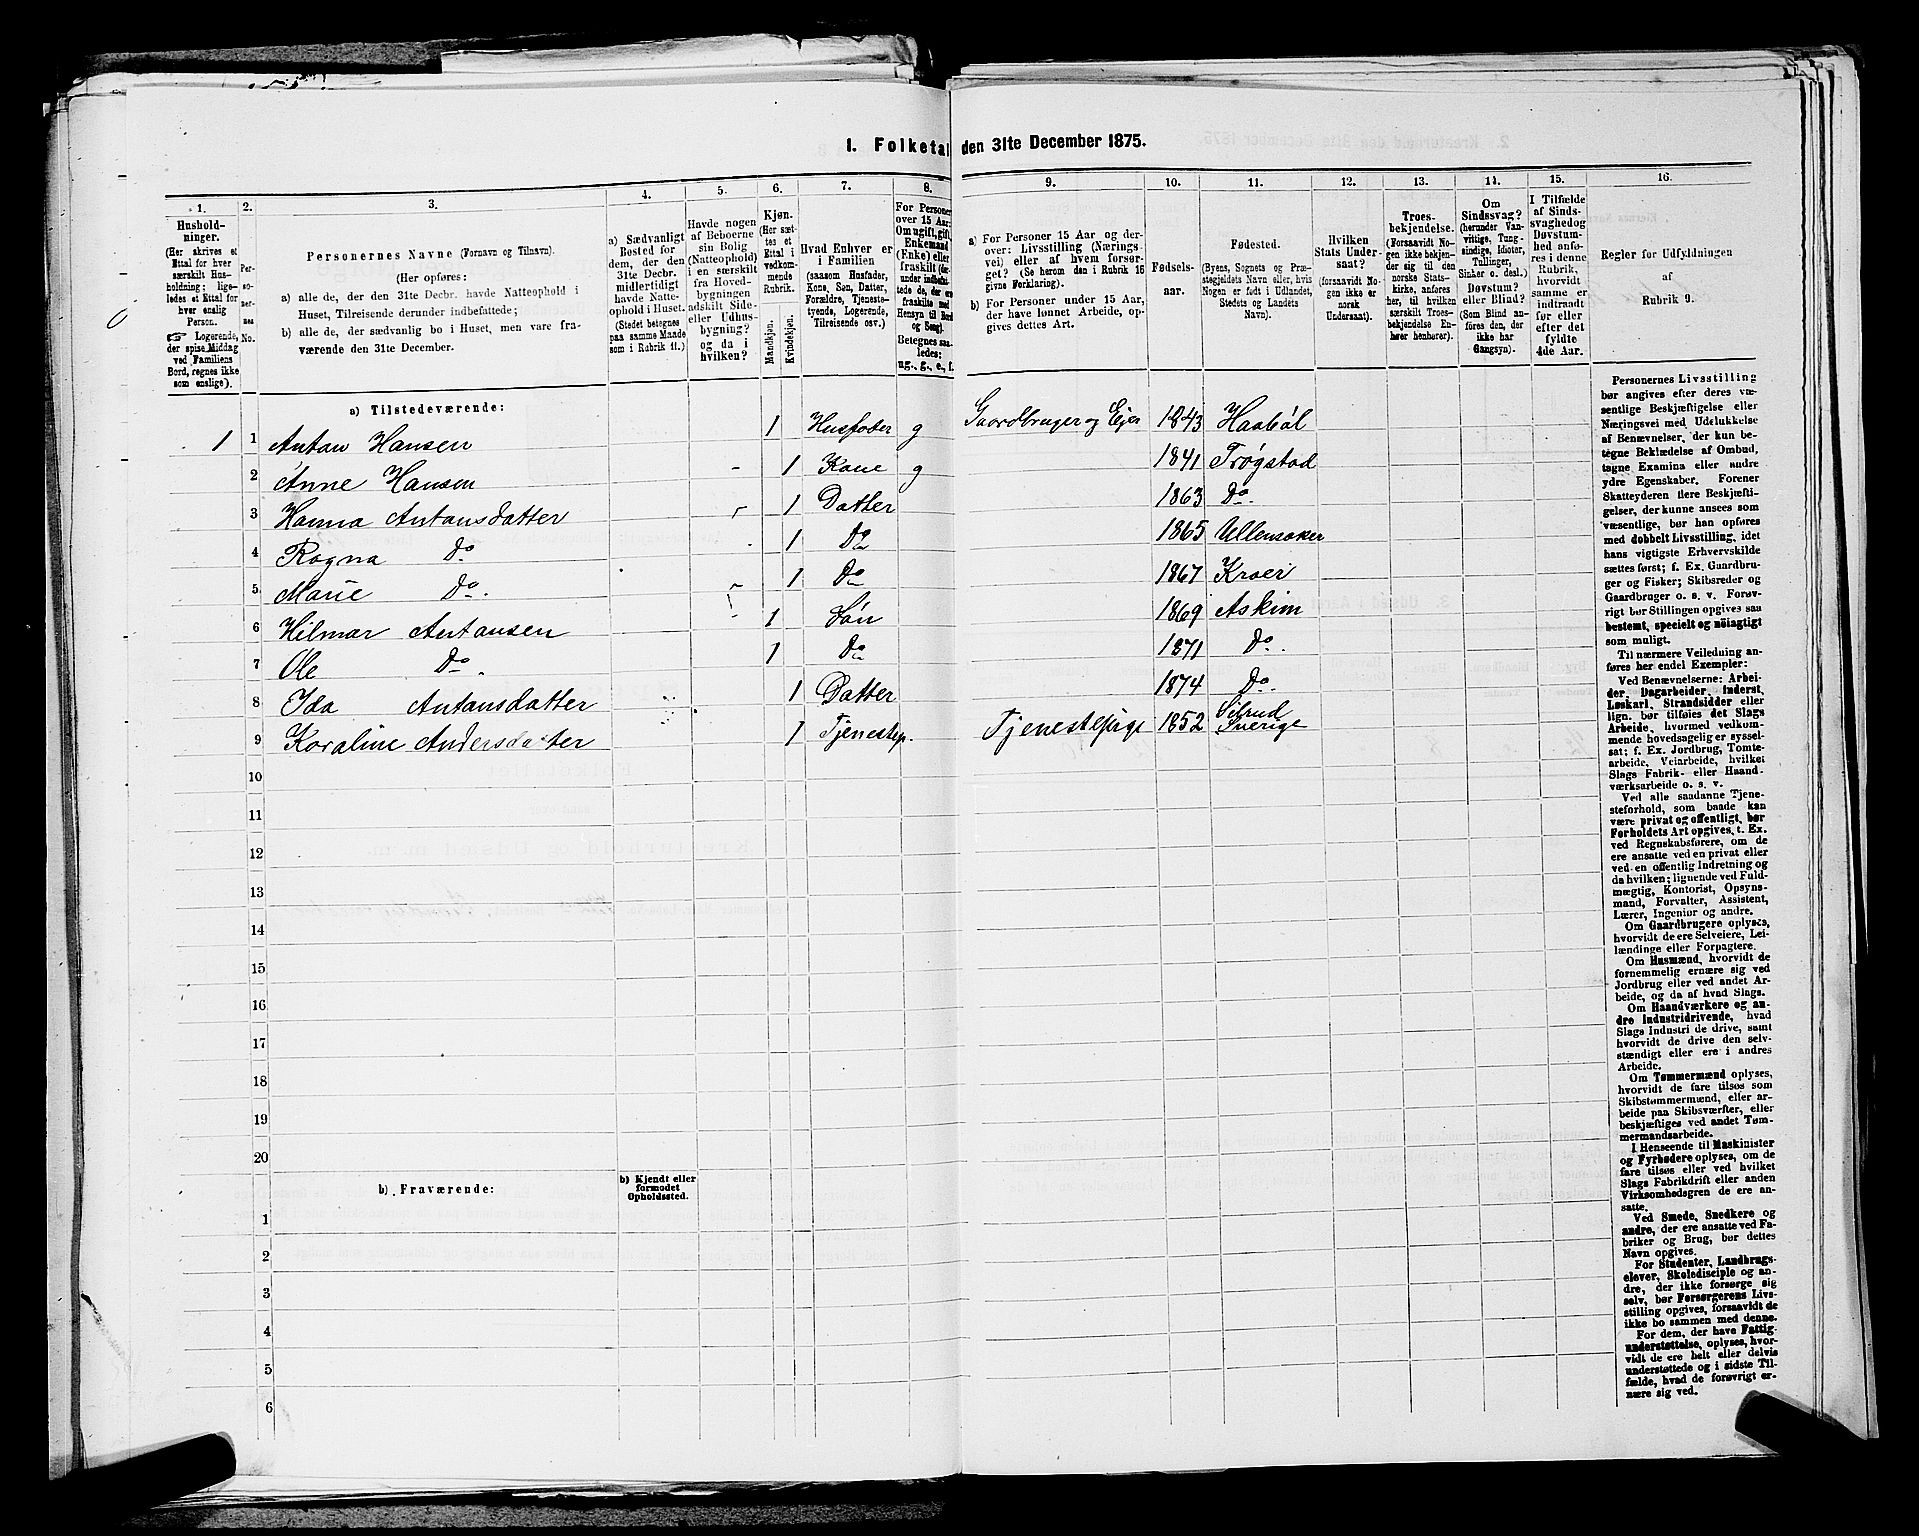 I. Folketal den 31te December 1875.
1. 2. 3. 4. 5. 6. 7. 8. 9. 10. 11. 12. 13. 14. 15. 16.
Husholdninger.
(Her skrives et
Ettal for hver
særskilt Husholdning;
ligeledes et Ettal for
hver enslig
Person.
Logerende,
der spise Middag
ved Familiens
Bord, regnes ikke
som enslige).
Personernes No.
Personernes Navne (Fornavn og Tilnavn).
(Her opføres:
a) alle de, der den 31te Decbr. havde Natteophold i
Huset, Tilreisende derunder indbefattede;
b) alle de, der sædvanlig bo i Huset, men vare fraværende den 31te December.
a) Sædvanligt
Bosted for
dem, der den
31te Decbr.
midlertidigt
havde Natteophold i Huset.
(Stedet betegnes
paa samme Maade
som i Rubrik 11.)
Havde nogen
af Beboerne
sin Bolig
(Natteophold)
i en særskilt
fra Hovedbygningen
adskilt Side- eller Udhusbygning?
og da i
hvilken?
Kjøn.
(Her sættes et
Ettal i
vedkommende
Rubrik.
Mandkjøn.
Kvindekjøn.
Hvad Enhver er
i Familien
(saasom Husfader,
Kone, Søn, Datter,
Forældre, Tjenestetyende, Logerende,
Tilreisende osv.)
For Personer
over 15 Aar:
Om ugift, gift,
Enkemand
(Enke) eller
fraskilt
Betegnes saaledes:
ug., g., e., f.
a) For Personer 15 Aar og derover: Livsstilling (Næringsvei) eller af hvem forsørget? (Se herom den i Rubrik 16
givne Forklaring.)
b) For Personer under 15 Aar,
der have lønnet Arbeide, opgives dettes Art.
Fødselsaar.
Fødested.
(Byens, Sognets og Præstegjeldets Navn eller, hvis
Nogen er født i Udlandet,
Stedets og Landets
Navn).
Hvilken
Stats Undersaat?
(forsaavidt Nogen ikke er
norsk
Undersaat).
Troesbekjendelse.
(Forsaavidt Nogen ikke bekjender sig til den
norske Statskirke, anføres
her, til hvilken
særskilt Troesbekjendelse Enhver henhører).
Om
Sindssvag?
(herunder Vanvittige, Tungsindige, Idioter,
Tullinger,
Sinker o. desl.)
Døvstum?
eller Blind?
(Som Blind anføres den, der
ikke har
Gangsyn).
I Tilfælde
af Sindssvaghed og
Døvstumhed anføres i denne
Rubrik,
hvorvidt
samme er
indtraadt
før eller
efter det
fyldte
4de Aar.
Regler for Udfyldningen
af
Rubrik 9.
a) Tilstedeværende:
1 1 Antan Hansen 1 Husfader g Gaardbruger og Eier 1843 Haabøl
2 Anne Hansen 1 Kone g 1841 Trøgstad
3 Hanna Antansdatter 1 Datter 1863 Do.
4 Ragna Do. 1 Do 1865 Ullensaker
5 Marie Do. 1 Do 1867 Kroer
6 Hilmar Antansen 1 Søn 1869 Askim
7 Ole Do. 1 Do 1871 Do.
8 Ida Antansdatter 1 Datter 1874 Do.
9 Karaline Andersdatter 1 Tjenestep. Tjenestepige 1852 Sverige
10
11
12
13
14
15
16
17
18
19
20
b) Fraværende:
b) Kjendt eller
formodet
Opholdssted.
1
2
3
4
5
6
Personernes Livsstilling
bør angives efter deres væsentlige Beskjæftigelse eller
Næringsvei med Udelukkelse
af Benævnelser, der kun betegne Beklædelse af Ombud,
tagne Examina eller andre
ydre Egenskaber. Forener
Skatteyderen flere Beskjæftigelser, der kunne ansees som
væsentlige, bør han opføres
med dobbelt Livsstilling, idet
hans vigtigste Erhvervskilde
sættes først; f. Ex. Gaardbruger og Fisker; Skibsreder og
Gaardbruger o. s. v. Forøvrigt bør Stillingen opgives saa
bestemt, specielt og nöiagtigt
som muligt.
Til nærmere Veiledning anføres her endel Exempler:
Ved Benævnelserne: Arbeider, Dagarbeider, Inderst,
Løskarl, Strandsidder eller
lign. bør tilføies det Slags
Arbeide, hvormed vedkommende hovedsagelig er sysselsat; f. Ex. Jordbrug, Tomtearbeide, Veiarbeide, hvilket
Slags Fabrik- eller Haandværksarbeide o. s. v.
Ved alle saadanne Tjenesteforhold, som baade kan
være privat og offentligt, bør
Forholdets Art opgives, t. Ex.
ved Regnskabsførere, om de
ere ansatte ved en privat eller
ved en offentlig Indretning og
da hvilken; lignende ved Fuldmægtig, Kontorist, Opsynsmand, Forvalter, Assistent,
Lærer, Ingeniør og andre.
Om Gaardbrugere oplyses,
hvorvidt de ere Selveiere, Leilændinge eller Forpagtere.
Om Husmænd, hvorvidt de
fornemmelig ernære sig ved
Jordbrug eller ved andet Arbeide, og da af hvad Slags.
Om Haandværkere og andre Industridrivende, hvad
Slags Industri de drive, samt
hvorvidt de drive den selvstændigt eller ere i andres
Arbeide.
Om Tømmermænd oplyses,
hvorvidt de fare tilsøs som
Skibstømmermænd, eller arbeide paa Skibsværfter, eller
beskjæftiges ved andet Tømmermandsarbeide.
I Henseende til Maskinister
og Fyrbødere oplyses, om de
fare tilsøs eller ved hvilket
Slags Fabrikdrift eller anden
Virksomhedsgren de ere ansatte.
Ved Smede, Snedkere og
andre, der ere ansatte ved Fabriker og Brug, bør dettes
Navn opgives.
For Studenter, Landbrugselever, Skoledisciple og andre, der ikke forsørge sig
selv, bør Forsørgerens Livsstilling opgives, forsaavidt de
ikke bo sammen med denne.
For dem, der have Fattigunderstøttelse, oplyses, hvorvidt de ere helt eller delvis
understøttede og i sidste Tilfælde, hvad de forøvrigt ernære sig ved.